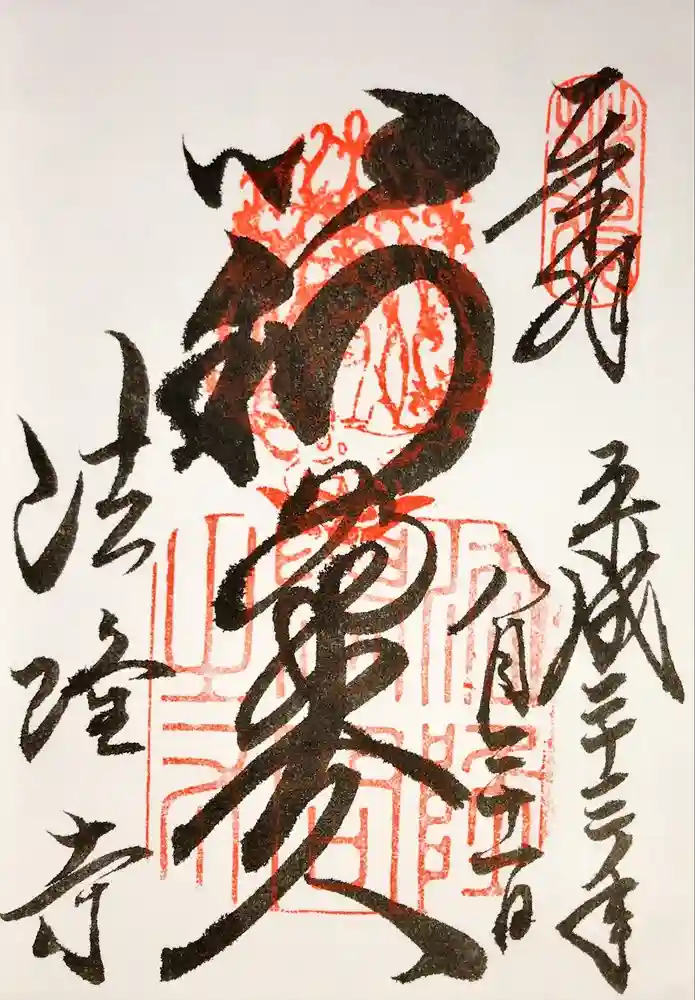 奉拝
平成二十三年
八月二十一日
以和為貴
法隆寺